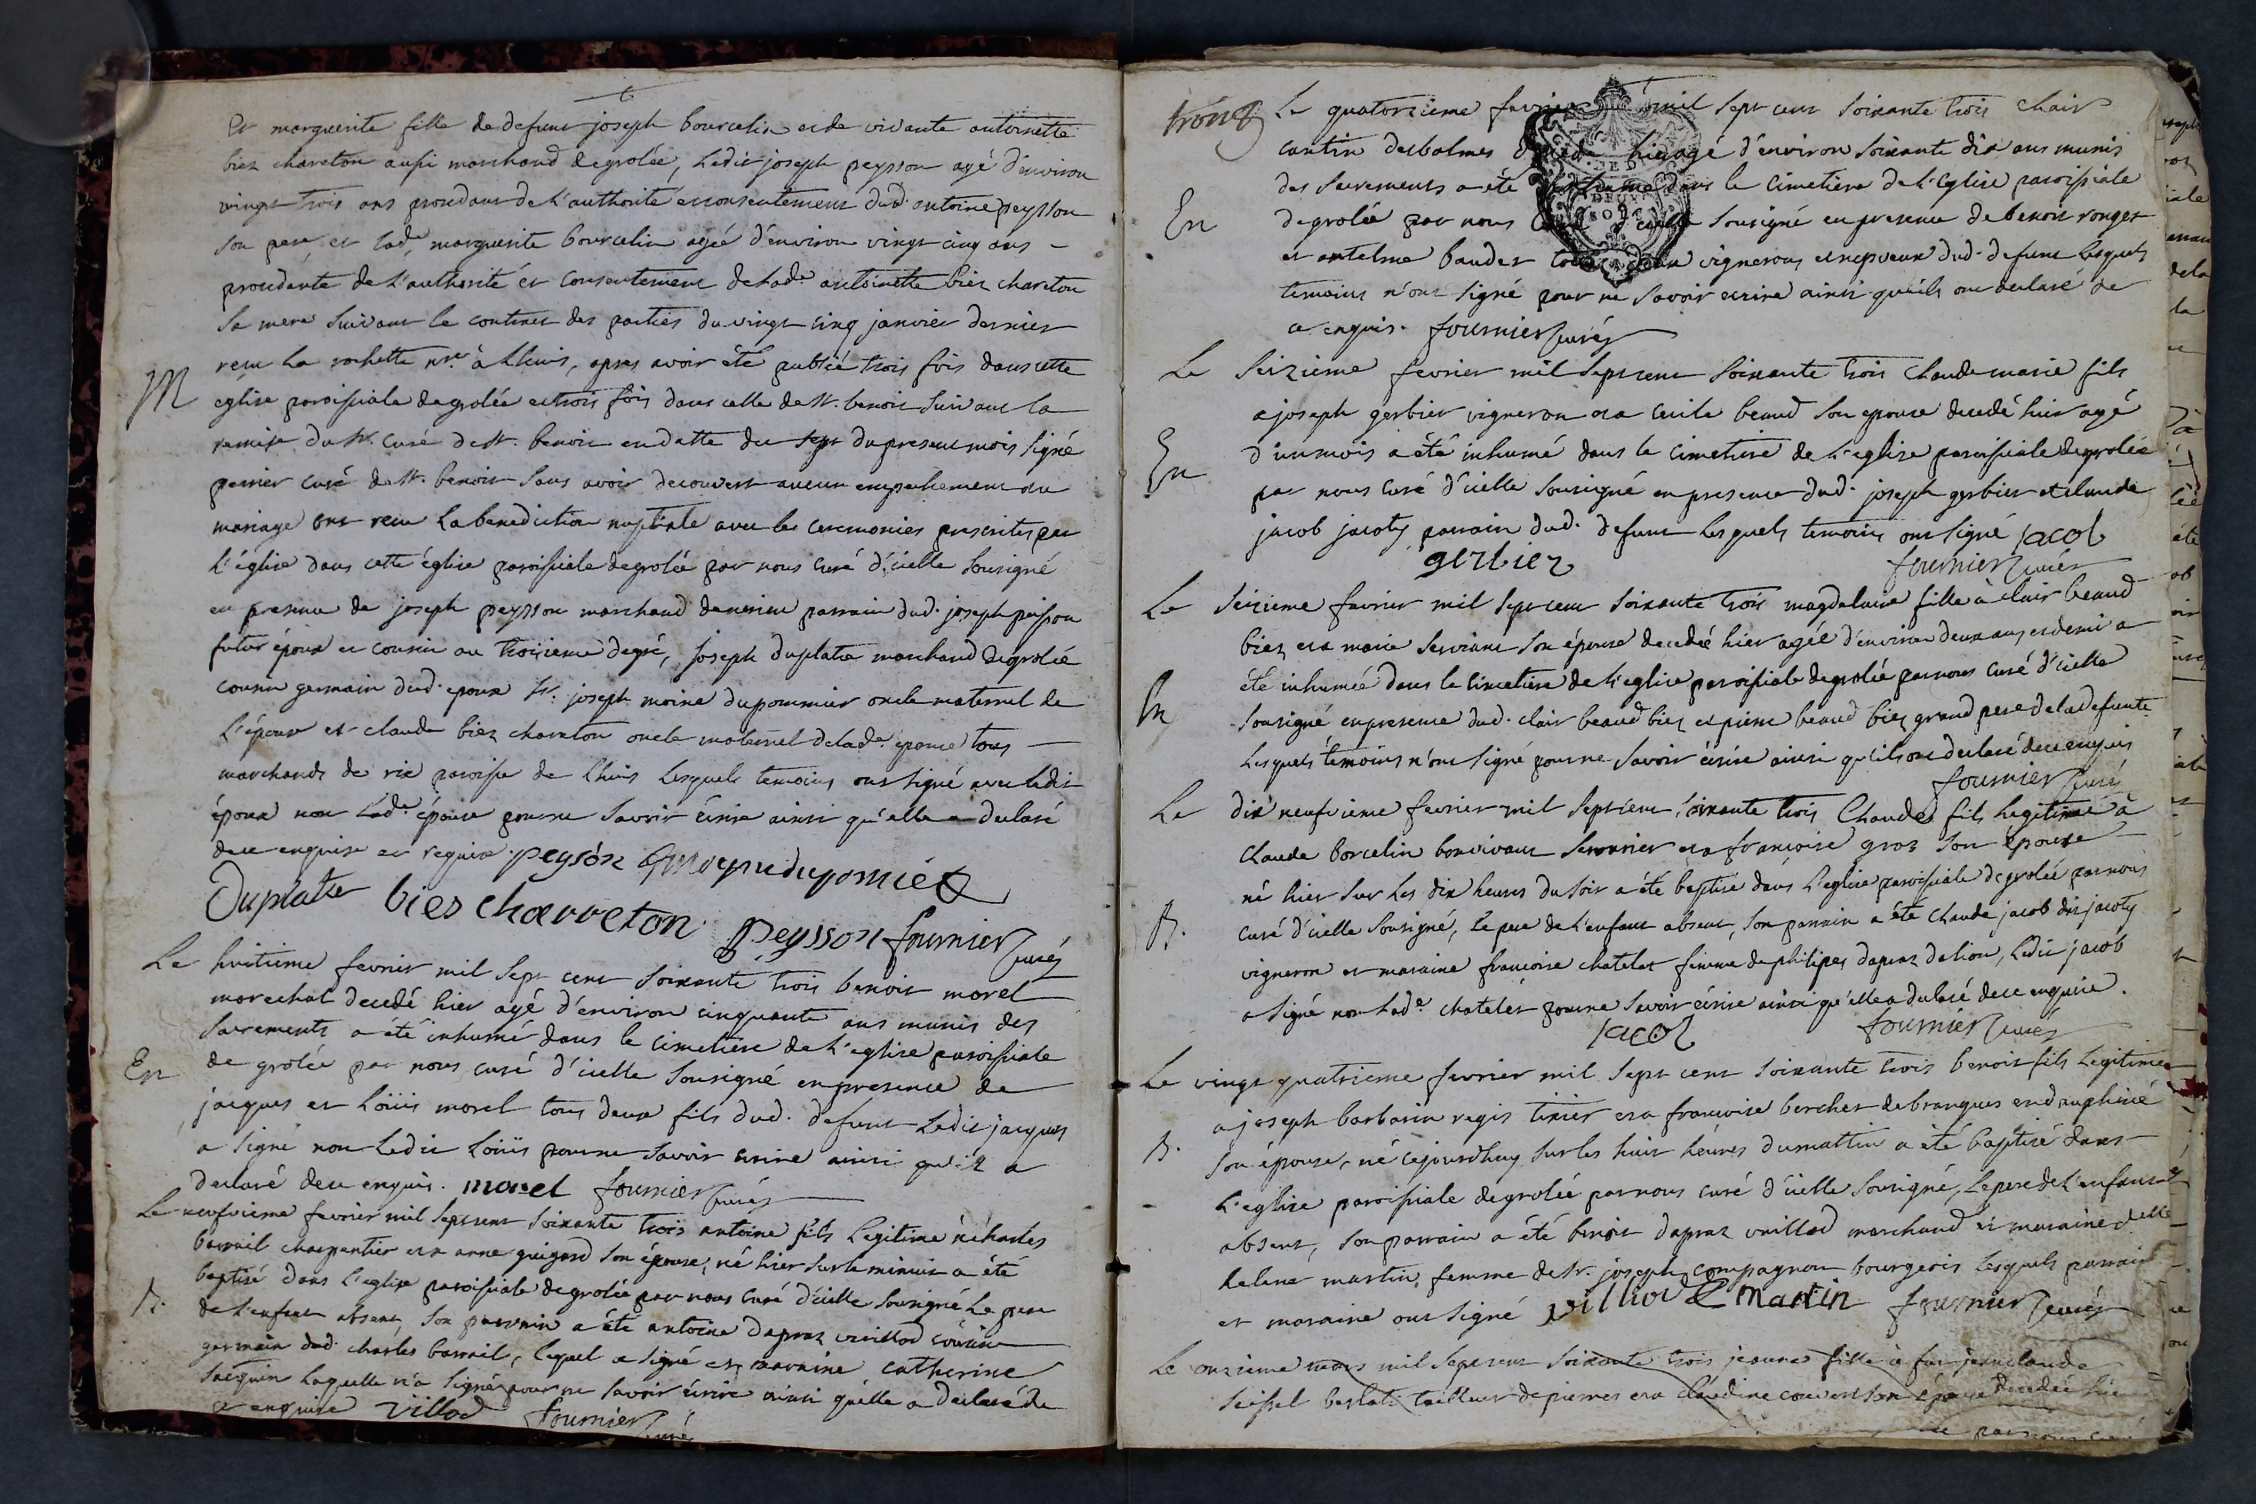 Et marguerite fille de defunt joseph bourcelin et de vivante antoinette
biez chareton aussi marchand de grolée, Ledit joseph peysson agé d'environ
vingt trois ans procedant de L'authorité et consentement dud. antoine peysson
son pere, et lade marguerite bourcelin agée d'environ vingt cinq ans
procedante de L'authorité et consentement de lade antoinette biez chareton
sa mere suivant le contract des parties du vingt cinq janvier dernier
recu La rochette nre à Lhuis, apres avoir été publié trois fois dans cette
M
eglise paroissiale de grolée et trois fois dans celle de St. benoit suivant la
remise du Sr. curé de St. benoit en datte du sept du present mois signé
perrier curé de St. benoit sans avoir decouvert aucun empechement au
mariage ont recu La benediction nuptiale avec les ceremonies prescrites par
L'église dans cette église paroissiale de grolée par nous curé d'icelle sousigné
en presence de joseph peysson marchand parrain dud. joseph peisson
futur époux et cousin au troisieme degré, joseph duplatre marchand de grolée
cousin germain dud. epoux Sr. joseph moine dupommier oncle maternel de
L'épouse et claude biez chareton oncle maternel de lade epouse tous
marchands de rix paroisse de Lhuis Lesquels temoins ont signé avec ledit
époux non lade épouse pour ne savoir écrire ainsi qu'elle a declaré
de ce enquise et requise peysón moynedupomié
Duplatre bies charreton peysson fournier curé
Le huitieme fevrier mil sept cent soixante trois benoit morel
marechal decedé hier agé d'environ cinquante ans munis des
sacrements a été inhumé dans le cimetiere de L'eglise paroissiale
En
de grolée par nous curé d'icelle sousigné en presence de
jacques et Loüis morel tous deux fils dud. defunt Ledit jacques
a signé non Ledit Loüis pour ne savoir ecrire ainsi qu'il a
declaré de ce enquis. morel fournier curé
Le neufvieme fevrier mil sept cent soixante trois antoine fils Legitime à charles
barrail charpentier et a anne guigard son épouse, né hier sur le minuit a été
baptisé dans L'eglise paroissiale de grolée par nous curé d'icelle sousigné Le pere
B.
de L'enfant absent, son parrain a été antoine dapraz vuillod cousin
germain dud. charles barrail, lequel a signé et marraine catherine
jacquin laquelle n'a signé pour ne savoir écrire ainsi qu'elle a declaré de
ce enquise villod fournier curé
Le quatorzieme fevrier mil sept cent soixante trois clair
cantin desbalmes hier agé d'environ soixante dix ans munis
des sacrements a été inhumé dans le cimetiere de L'eglise paroissiale
En
de grolée par nous curé d'icelle sousigné en presence de benoit ronger
et antelme baudet tous deux vignerons et nepveux dud. defunt Lesquels
temoins n'ont signé pour ne savoir ecrire ainsi qu'ils ont declaré de
ce enquis. fournier curé
Le seizieme fevrier mil sept cent soixante trois claude marie fils
a joseph gerbier vigneron et a cecile beaud son epouse decedé hier agé
En
d'un mois a été inhumé dans le cimetiere de L'eglise paroissiale de grolée
par nous curé d'icelle sousigné en presence dud. joseph gerbier et claude
jacob jacoty parrain dud. defunt Lesquels temoins ont signé jacob
gerbier fournier curé
Le seizieme fevrier mil sept cent soixante trois magdelaine fille à clair beaud
biez et a marie servant son épouse decedée hier agée d'environ deux ans et demi a
été inhumée dans le cimetiere de L'eglise paroissiale de grolée par nous curé d'icelle
En
sousigné en presence dud. clair beaud biez et pierre beaud biez grand pere de la defunte
Lesquels témoins n'ont signé pour ne savoir écrire ainsi qu'ils ont declaré de ce enquis
fournier curé
Le dix neufvieme fevrier mil sept cent soixante trois Claude fils Legitime à
claude borcelin bonvivant serrurier et a francoise gros son épouse
né hier sur les dix heures du soir a été baptisé dans L'eglise paroissiale de grolée par nous
B.
curé d'icelle sousigné, Le pere de L'enfant absent, son parrain a été claude jacob dit jacoty
vigneron et maraine francoise chatelat femme de philipes dapraz dalion, Ledit jacob
a signé non lade chatelat pour ne savoir écrire ainsi qu'elle a declaré de ce enquise.
jacob fournier curé
Le vingt quatrieme fevrier mil sept cent soixante trois benoit fils Legitime
a joseph barbarin regis tixier et a francoise berchet de brangues en dauphiné
B.
son épouse, né cejourdhuy sur les huit heures du mattin a été baptisé dans
L'eglise paroissiale de grolée par nous curé d'icelle sousigné, Le pere de L'enfant
absent, son parrain a été benoit dapraz vuillod marchand et maraine delle
helene martin, femme de Sr. joseph compagnon bourgeois Lesquels parrain
et maraine ont signé villiod martin fournier curé
Le onzieme mars mil sept cent soixante trois jeanne fille à feu jean claude
seissel tailleur de pierres et a claudine couvert son épouse decedée hier
par nous curé